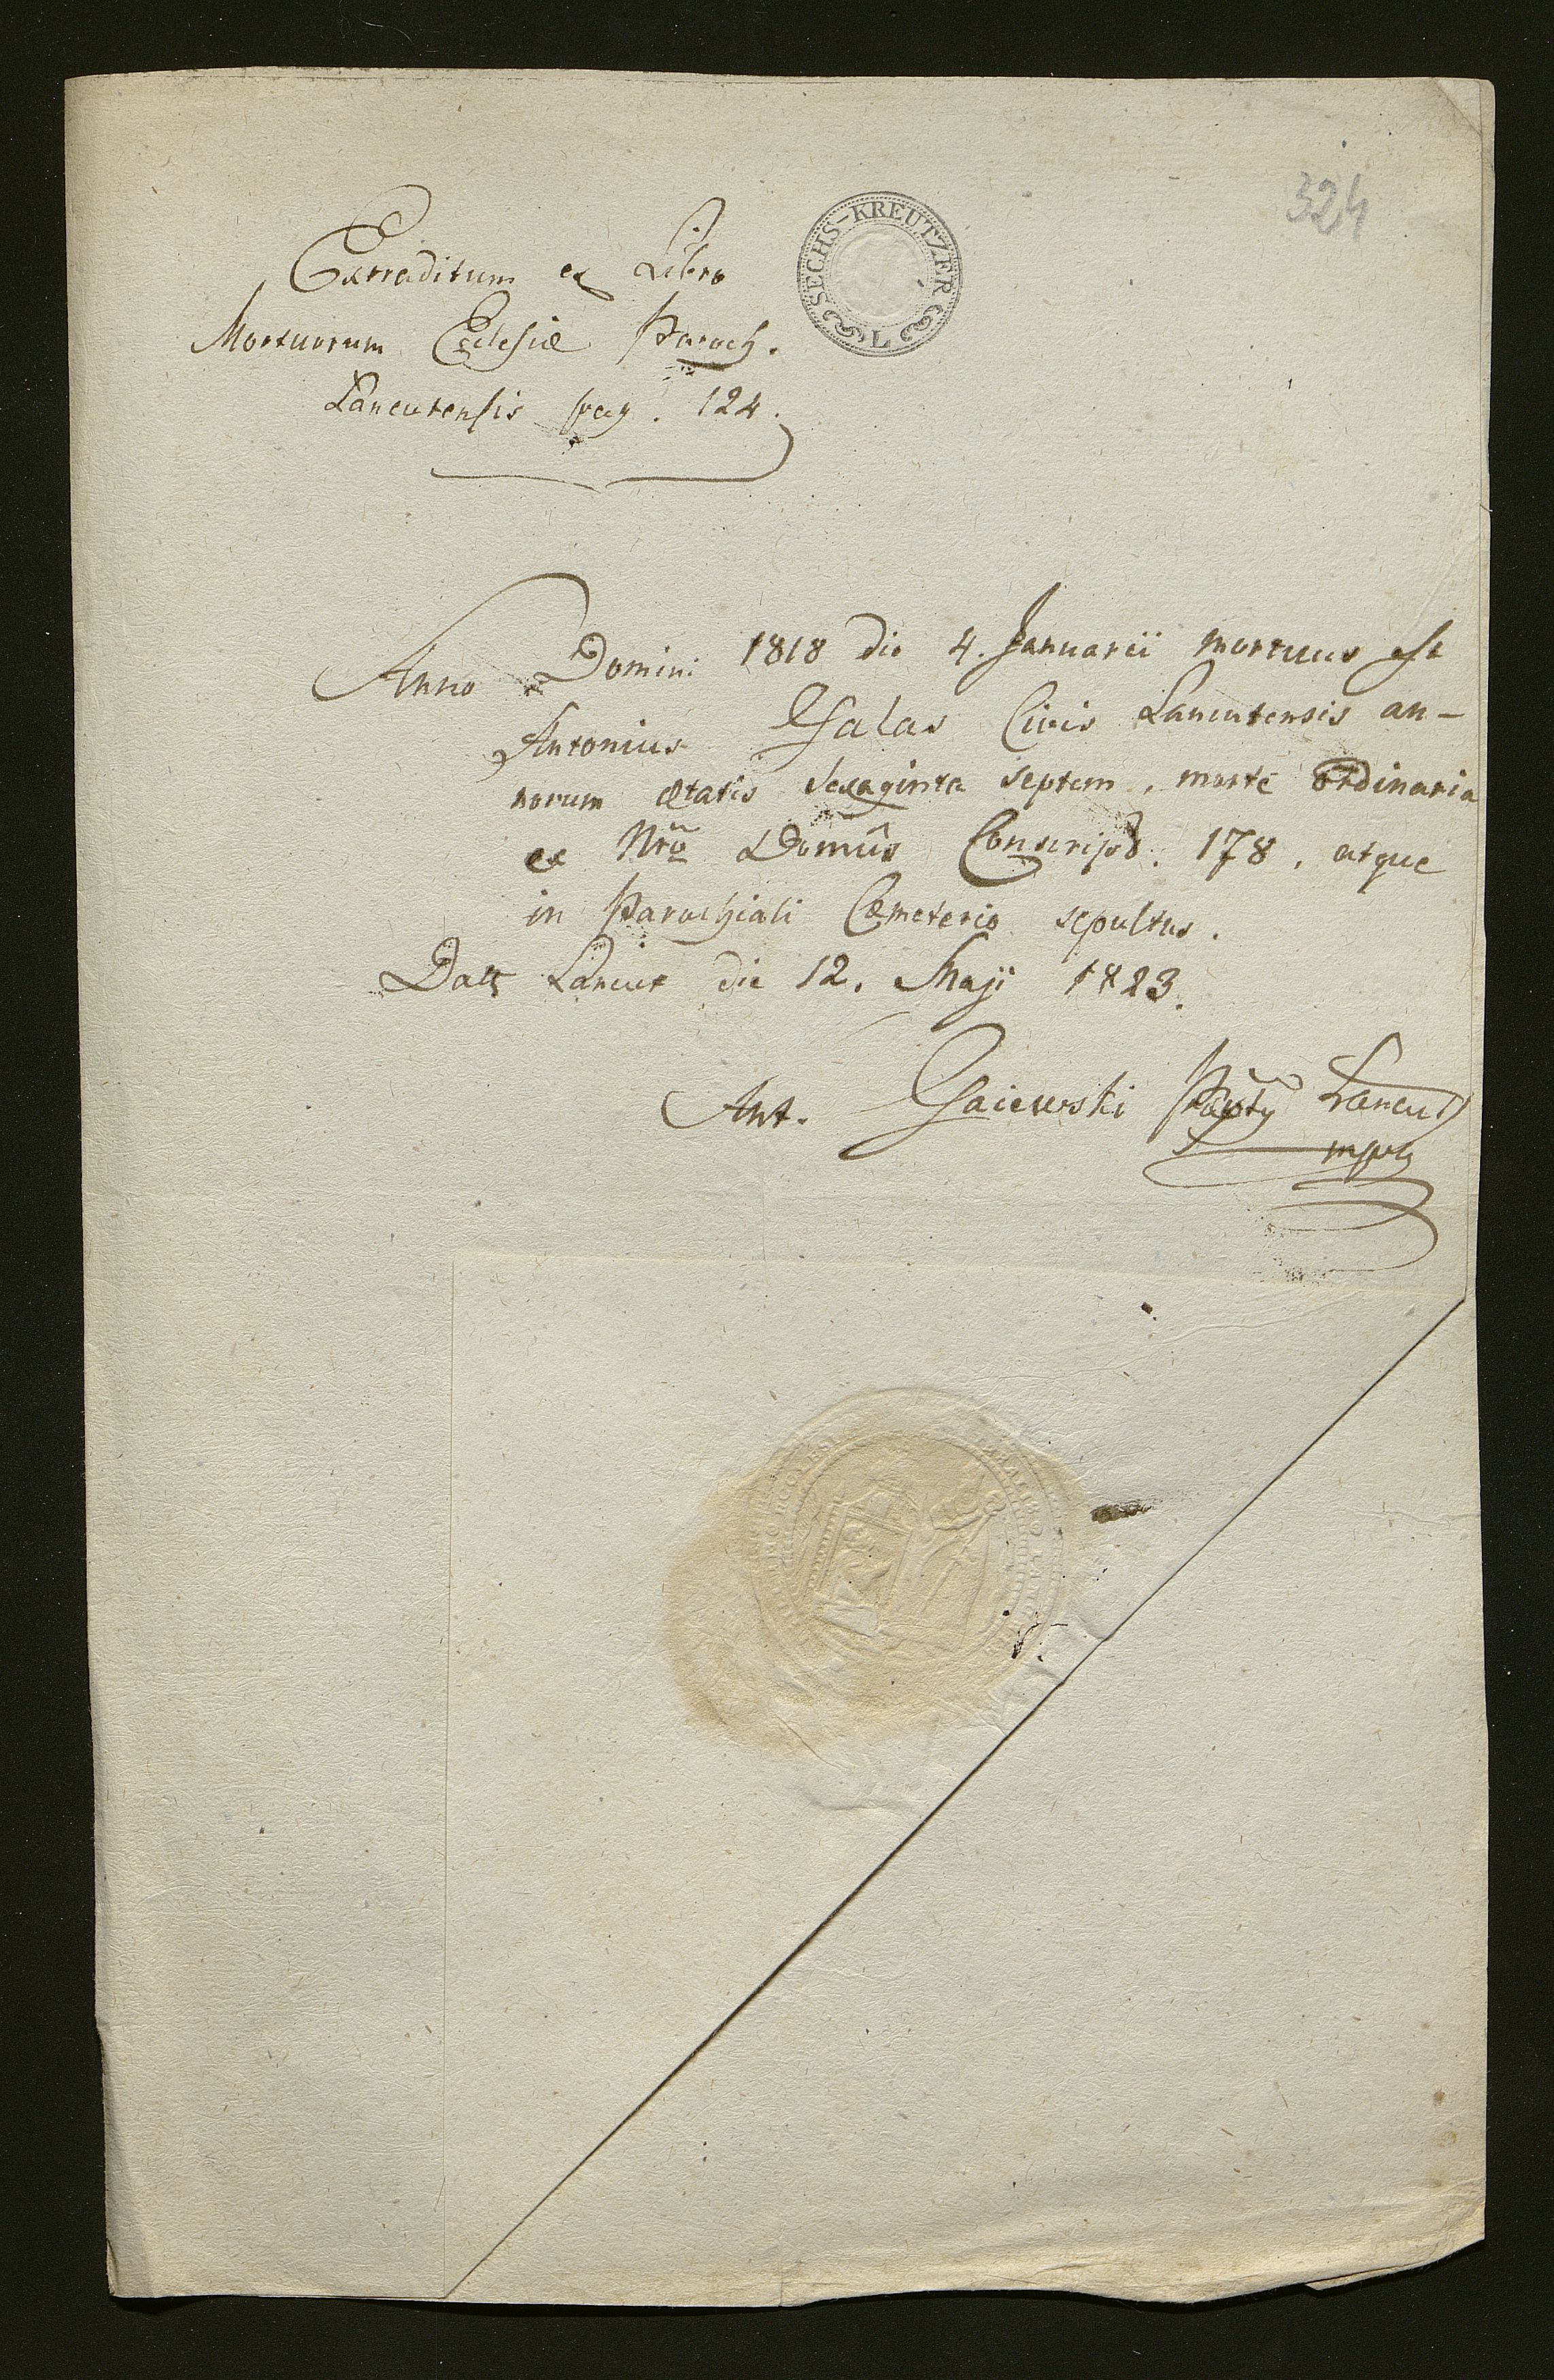 324
SECHS-KREUTZER
L
Extraditum ex Libro
Mortuorum Ecclesiæ Paroch.
Lancutensis pag. 124.
Anno Domini 1818 die 4. Januarii mortuus est
Antonius Galas Civis Lancutensis an-
norum ætatis sexaginta septem, morte ordinaria
ex Nrõ Domûs Conscript. 178, atque
in Parochiali Cœmeterio sepultus.
Datt Lancut die 12. Maji 1823.
Ant. Gaiewski Lancut
mpp